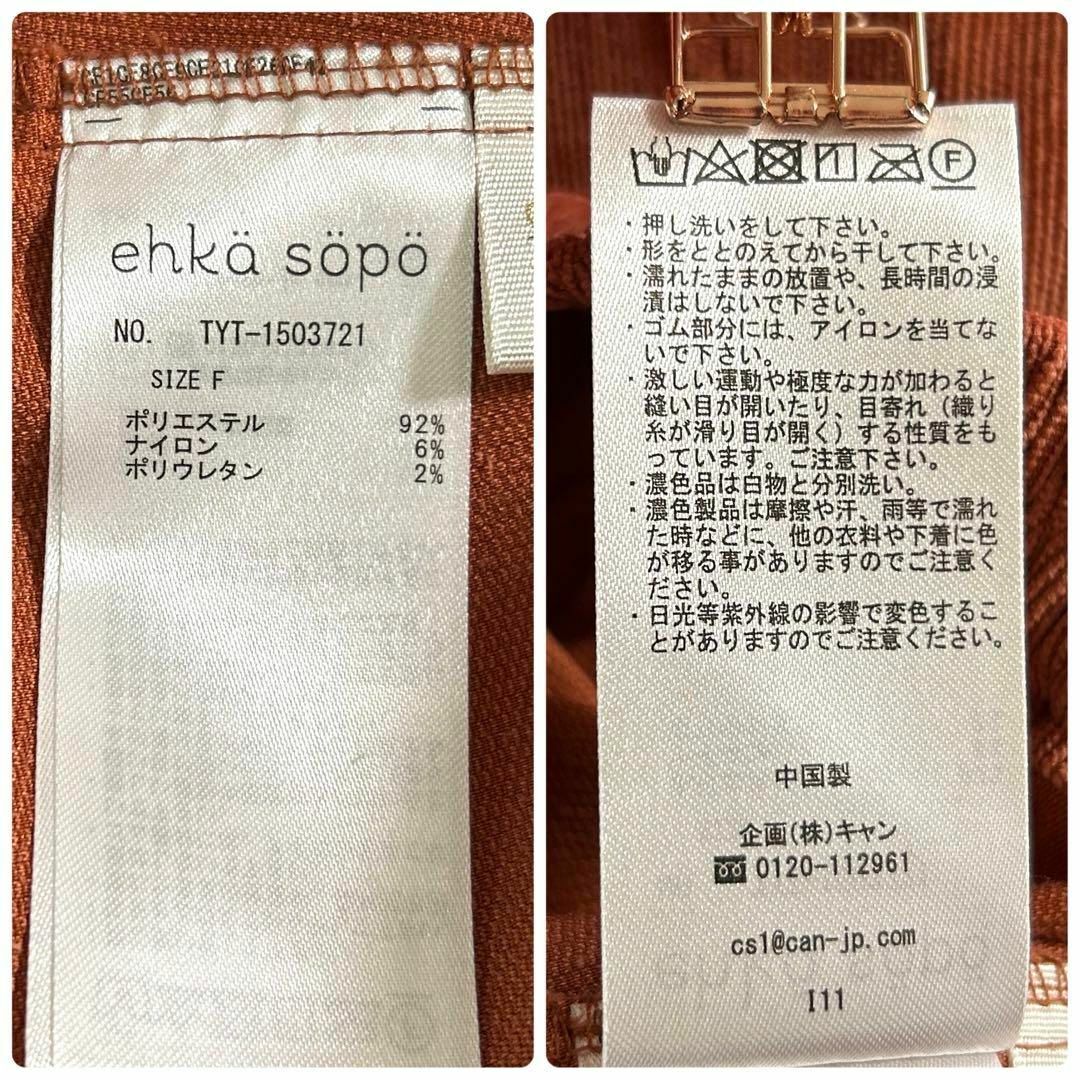 ehkä söpö
NO. TYT-1503721
SIZE F
ポリエステル 92%
ナイロン 6%
ポリウレタン 2%
F
・押し洗いをして下さい。
・形をととのえてから干して下さい。
・濡れたままの放置や、長時間の浸
漬はしないで下さい。
・ゴム部分には、アイロンを当てな
いで下さい。
・激しい運動や極度な力が加わると
縫い目が開いたり、目寄れ(織り
糸が滑り目が開く)する性質をも
っています。ご注意下さい。
・濃色品は白物と分別洗い。
・濃色製品は摩擦や汗、雨等で濡れ
た時などに、他の衣料や下着に色
が移る事がありますのでご注意く
ださい。
・日光等紫外線の影響で変色するこ
とがありますのでご注意ください。
中国製
企画(株)キャン
0120-112961
cs1@can-jp.com
I11